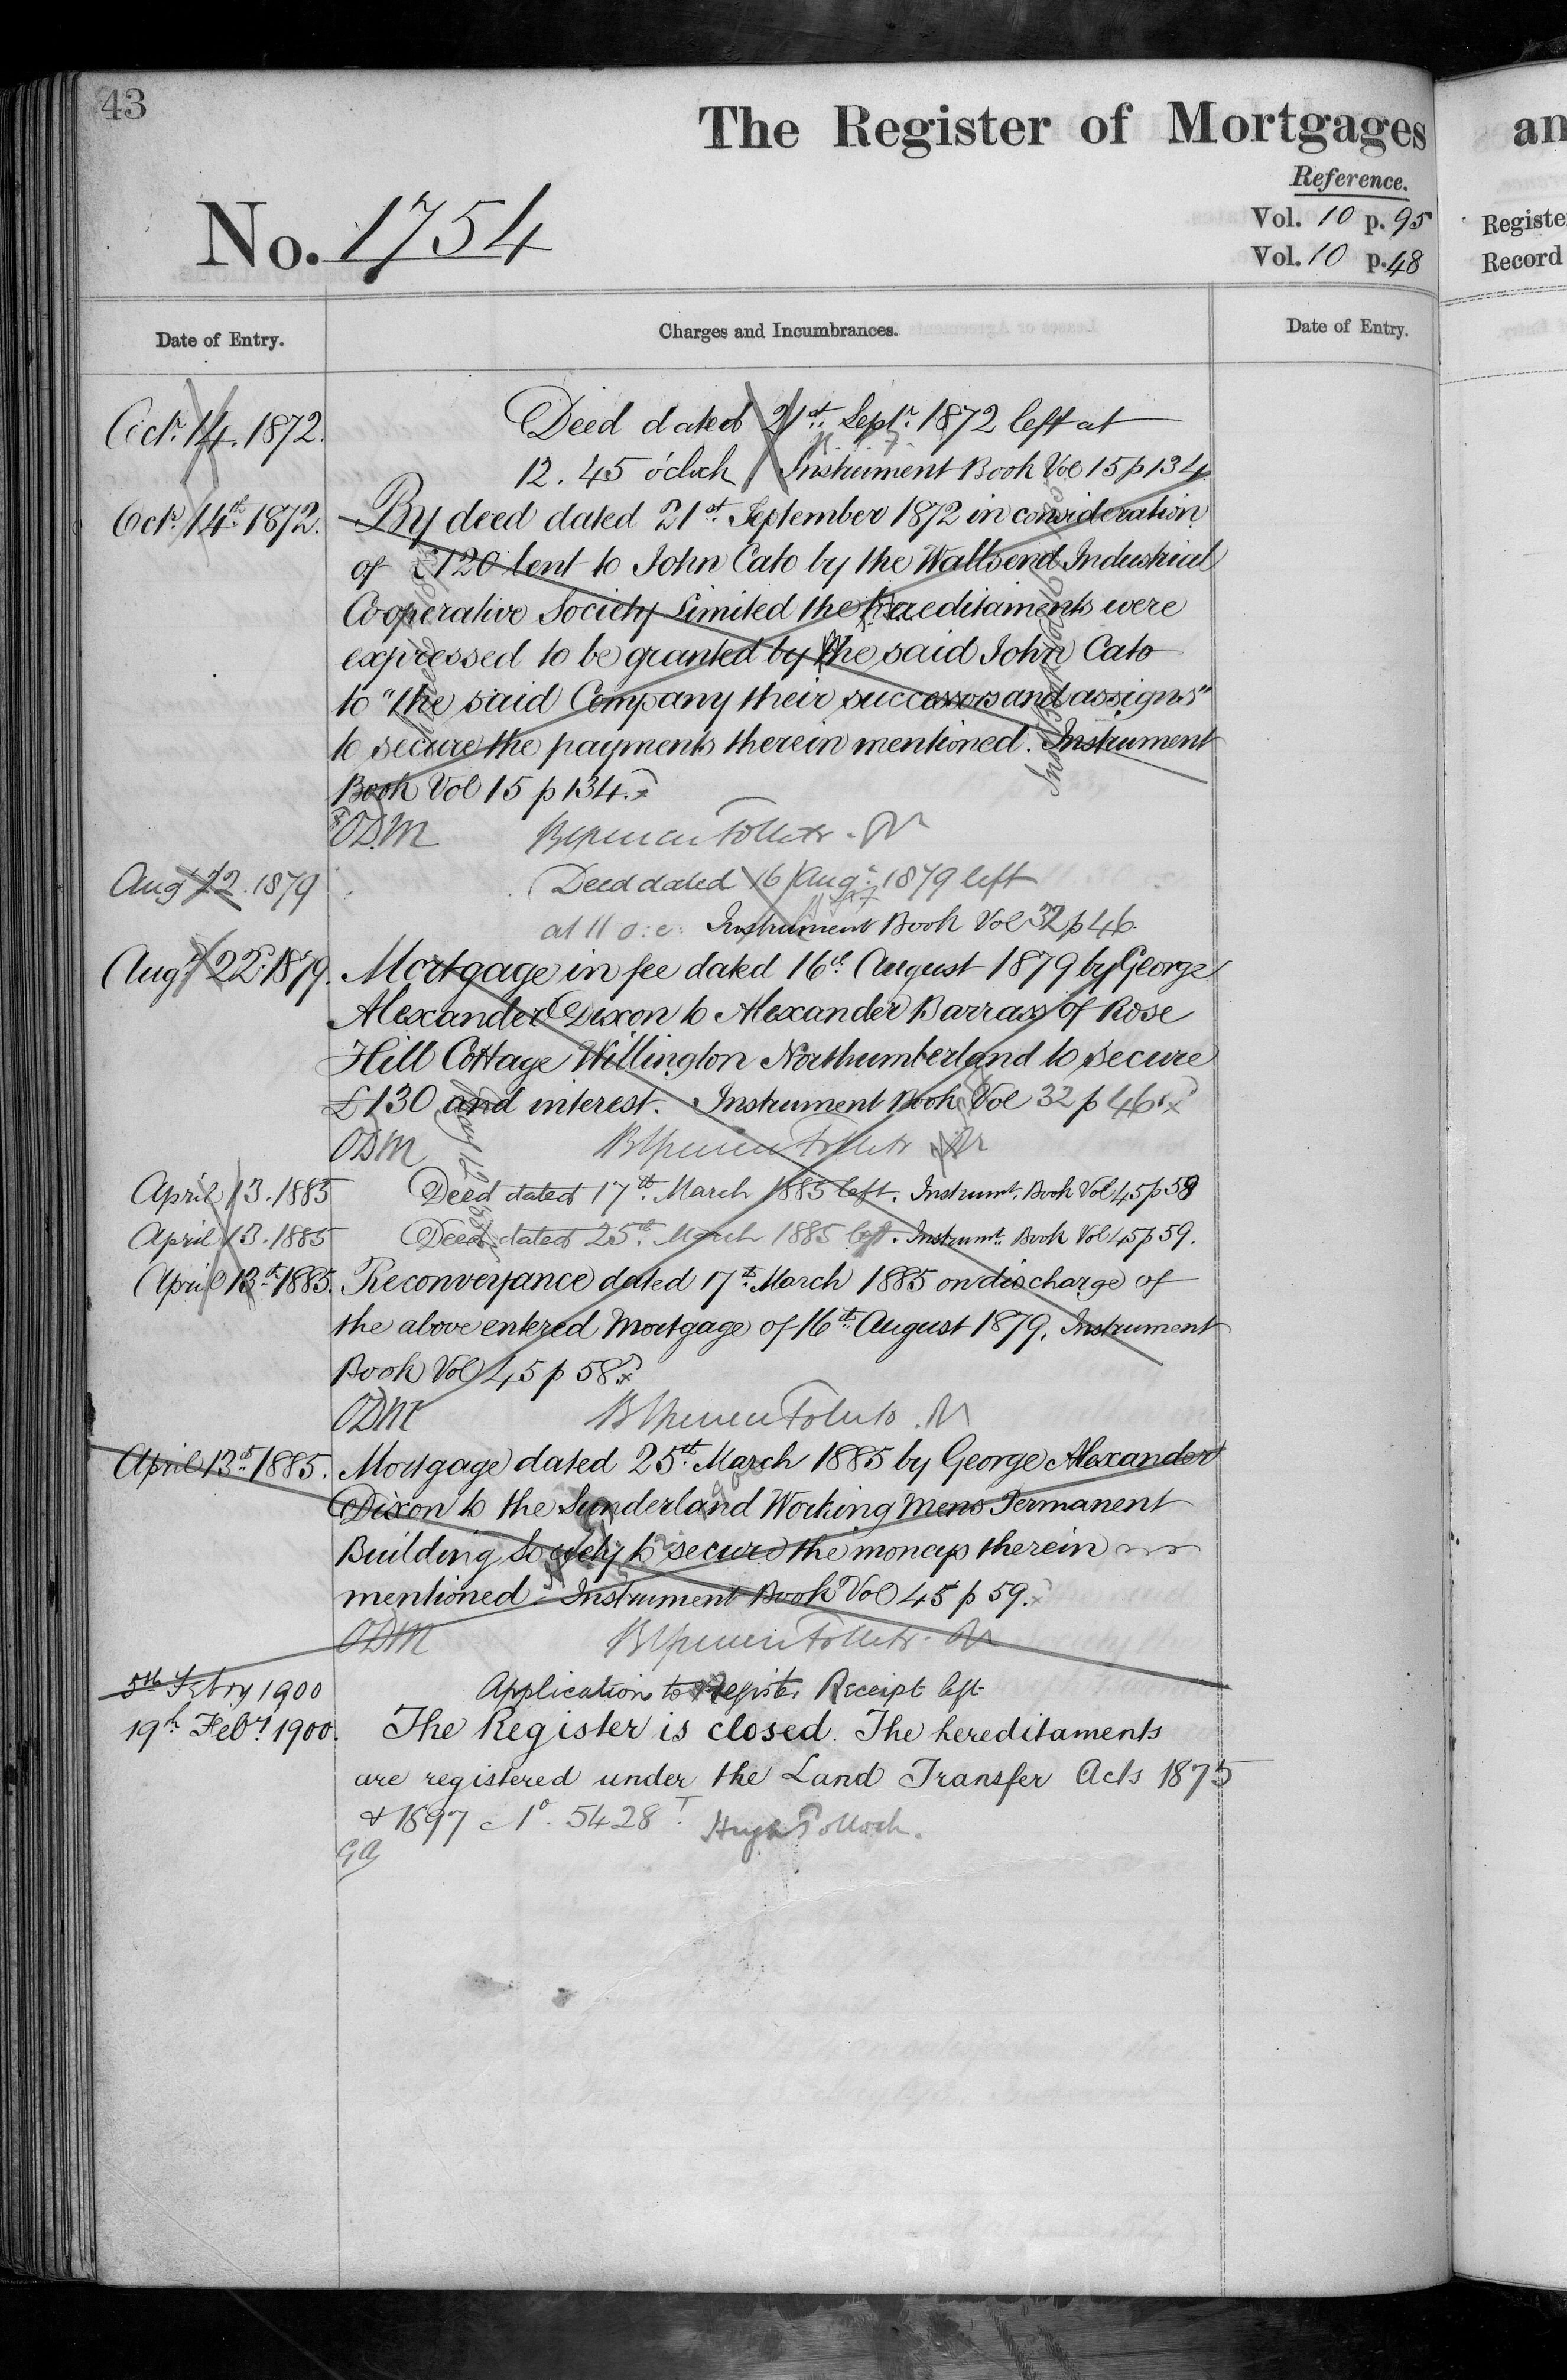 43
The Register of Mortgages
an
Reference.
Vol. 10 p. 95
Vol. 10 p. 48
Registe
Record
No. 1754
Date of Entry.
Charges and Incumbrances.
Date of Entry.
Octr. 14. 1872. Deed dated 21st. Septr. 1872 left at
12. 45 o'clock Instrument Book Vol 15 p 134.
Octr. 14th 1872. By deed dated 21st. September 1872 in consideration
of £120 lent to John Cato by the Wallsend Industrial
Cooperative Society Limited the hereditaments were
expressed to be granted by the said John Cato
to "the said Company their successors and assigns"
to secure the payments therein mentioned. Instrument
Book Vol 15 p 134.
ODM
Augt 22. 1879 Deed dated 16 Augt. 1879 left
at 11 o:c: Instrument Book Vol 32 p 46.
Augt. 22d. 1879. Mortgage in fee dated 16th August 1879 by George
Alexander Dixon to Alexander Barrass of Rose
Hill Cottage Willington Northumberland to secure
£130 and interest. Instrument Book Vol 32 p 46.
ODM
April 13. 1885 Deed dated 17th. March 1885 left. Instrumt. Book Vol 45 p 58
April 13. 1885 Deed dated 25th. March 1885 left. Instrumt. Book Vol 45 p 59.
April 13th. 1885. Reconveyance dated 17th. March 1885 on discharge of
the above entered Mortgage of 16th. August 1879. Instrument
Book Vol 45 p 58
ODM
April 13th. 1885. Mortgage dated 25th. March 1885 by George Alexander
Dixon to the Sunderland Working Mens Permanent
Building Society to secure the moneys therein
mentioned. Instrument Book Vol 45 p 59.
ODM
5th Febry 1900 Application to Register Receipt left
19th Feby. 1900. The Register is closed. The hereditaments
are registered under the Land Transfer Acts 1875
& 1897 No. 5428 T. Hugh Pollock.
GA